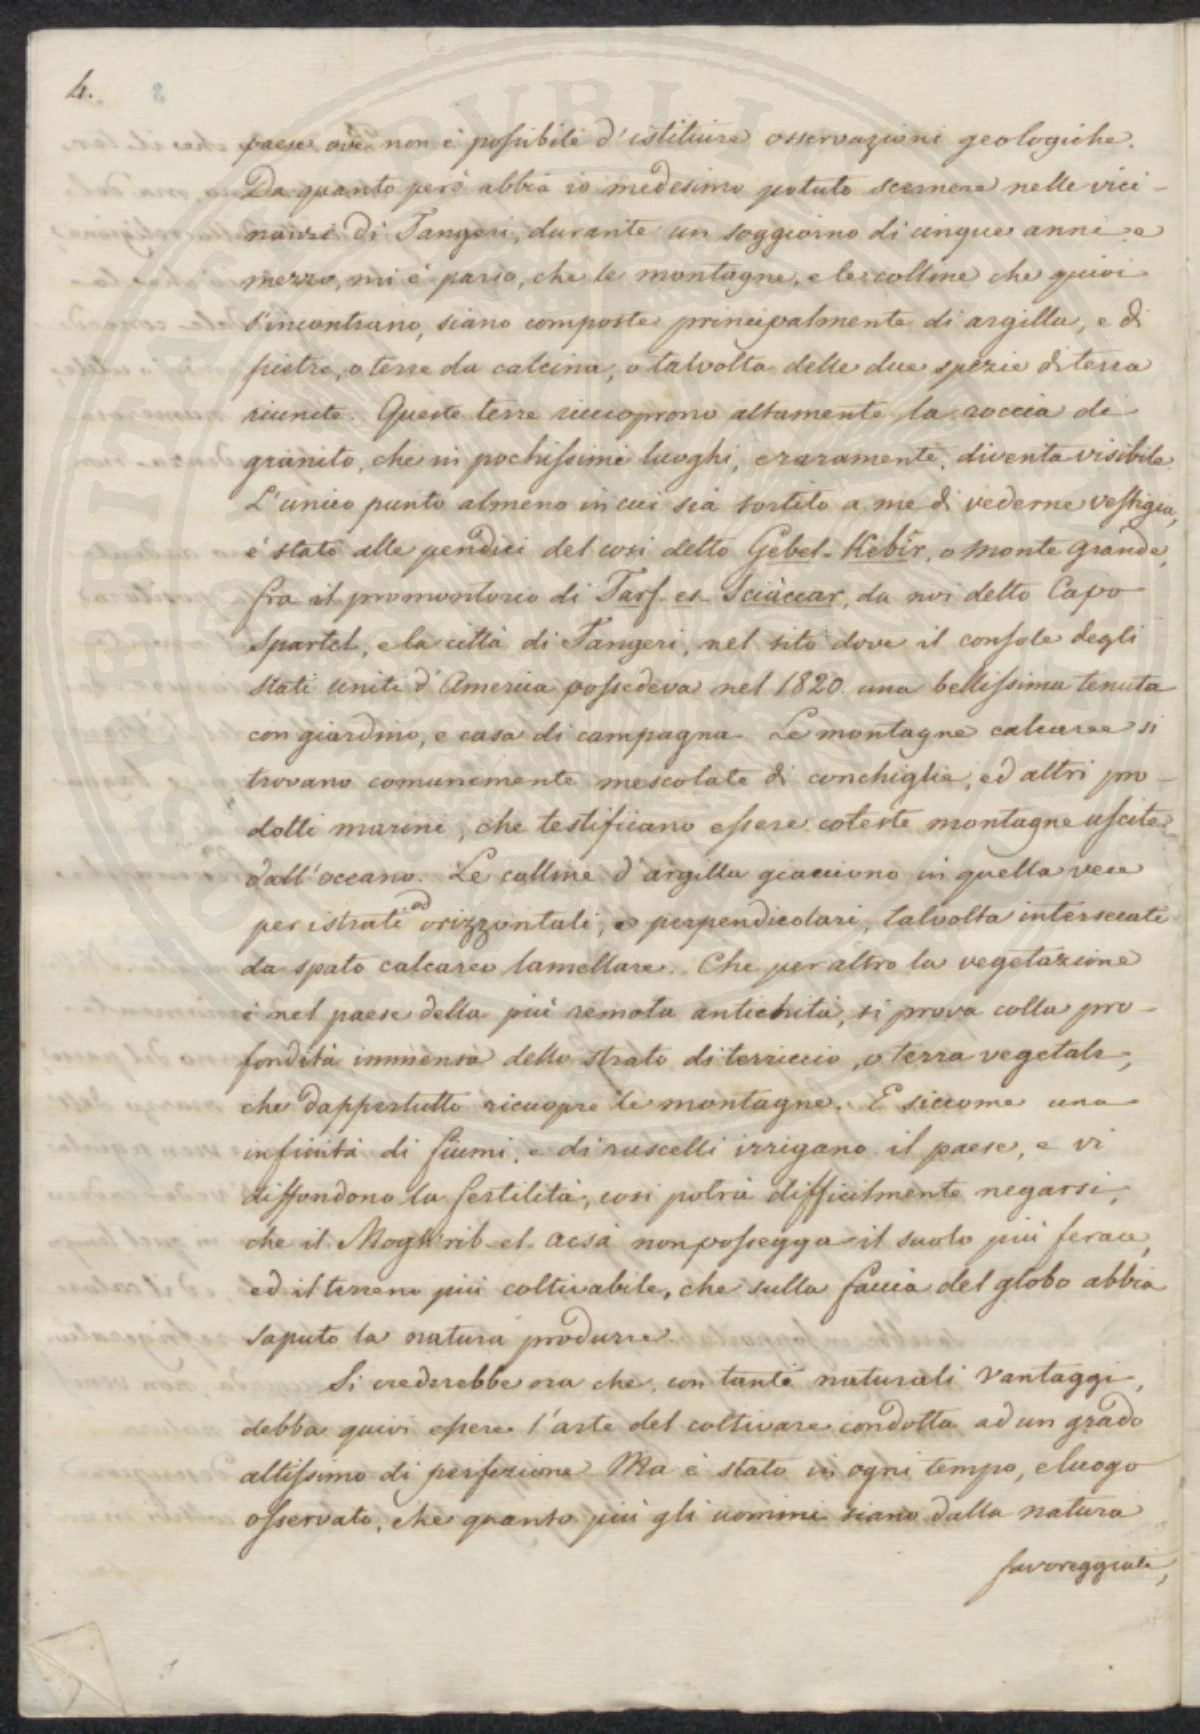 4.
paese ove non è possibile d'istituire osservazioni geologiche.
Da quanto però abbia io medesimo potuto scernere nelle vici-
nanze di Tangeri, durante un soggiorno di cinque anni e
mezzo, mi è parso, che le montagne, e le colline che quivi
s'incontrano, siano composte principalmente di argilla, e di
pietre, o terre da calcina, o talvolta delle due spezie di terra
riunite. Queste terre ricuoprono altamente la roccia di
granito, che in pochissimi luoghi, e raramente, diventa visibile.
L'unico punto almeno in cui sia sortito a me di vederne vestigia,
è stato alle pendici del così detto Gebel-Kebìr, o Monte grande,
fra il promontorio di Tarf-es-Sciàccar, da noi detto Capo
Spartel, e la città di Tangeri, nel sito dove il console degli
stati uniti d'America possedeva nel 1820. una bellissima tenuta
con giardino, e casa di campagna. Le montagne calcaree si
trovano comunemente mescolate di conchiglie, ed altri pro-
dotti marini, che testificano essere coteste montagne uscite
dall'oceano. Le colline d'argilla giacciono in quella vece
per istrati orizzontali, ed perpendicolari, talvolta intersecati
da spato calcareo lamellare. Che per altro la vegetazione
è nel paese della più remota antichità, si prova colla pro-
fondità immensa dello strato di terriccio, o terra vegetale,
che dappertutto ricuopre le montagne. E siccome una
infinità di fiumi, e di ruscelli irrigano il paese, e vi
diffondono la fertilità, così potrà difficilmente negarsi,
che il Mogh'rib-el-acsà non possegga il suolo più ferace,
ed il terreno più coltivabile, che sulla faccia del globo abbia
saputo la natura produrre.
Si crederebbe ora che, con tanti naturali vantaggi,
debba quivi essere l'arte del coltivare condotta ad un grado
altissimo di perfezione. Ma è stato in ogni tempo, e luogo
osservato, che quanto più gli uomini siano dalla natura
favoreggiati,